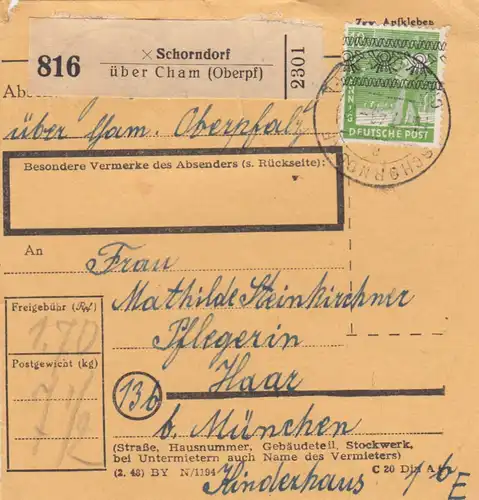 Zw. Aufkleben
816
× Schorndorf
über Cham (Oberpf)
2301
DEUTSCHE POST
SCHORNDORF
Abse
über Cham. Oberpfalz
Besondere Vermerke des Absenders (s. Rückseite):
An
Frau
Mathilde Steinkirchner
Pflegerin
Haar
13b
b. München
Freigebühr (RM)
1,70
Postgewicht (kg)
7 1/2
(Straße, Hausnummer, Gebäudeteil, Stockwerk,
bei Untermietern auch Name des Vermieters)
(2. 48) BY N/1194
C 20 Din A
Kinderhaus